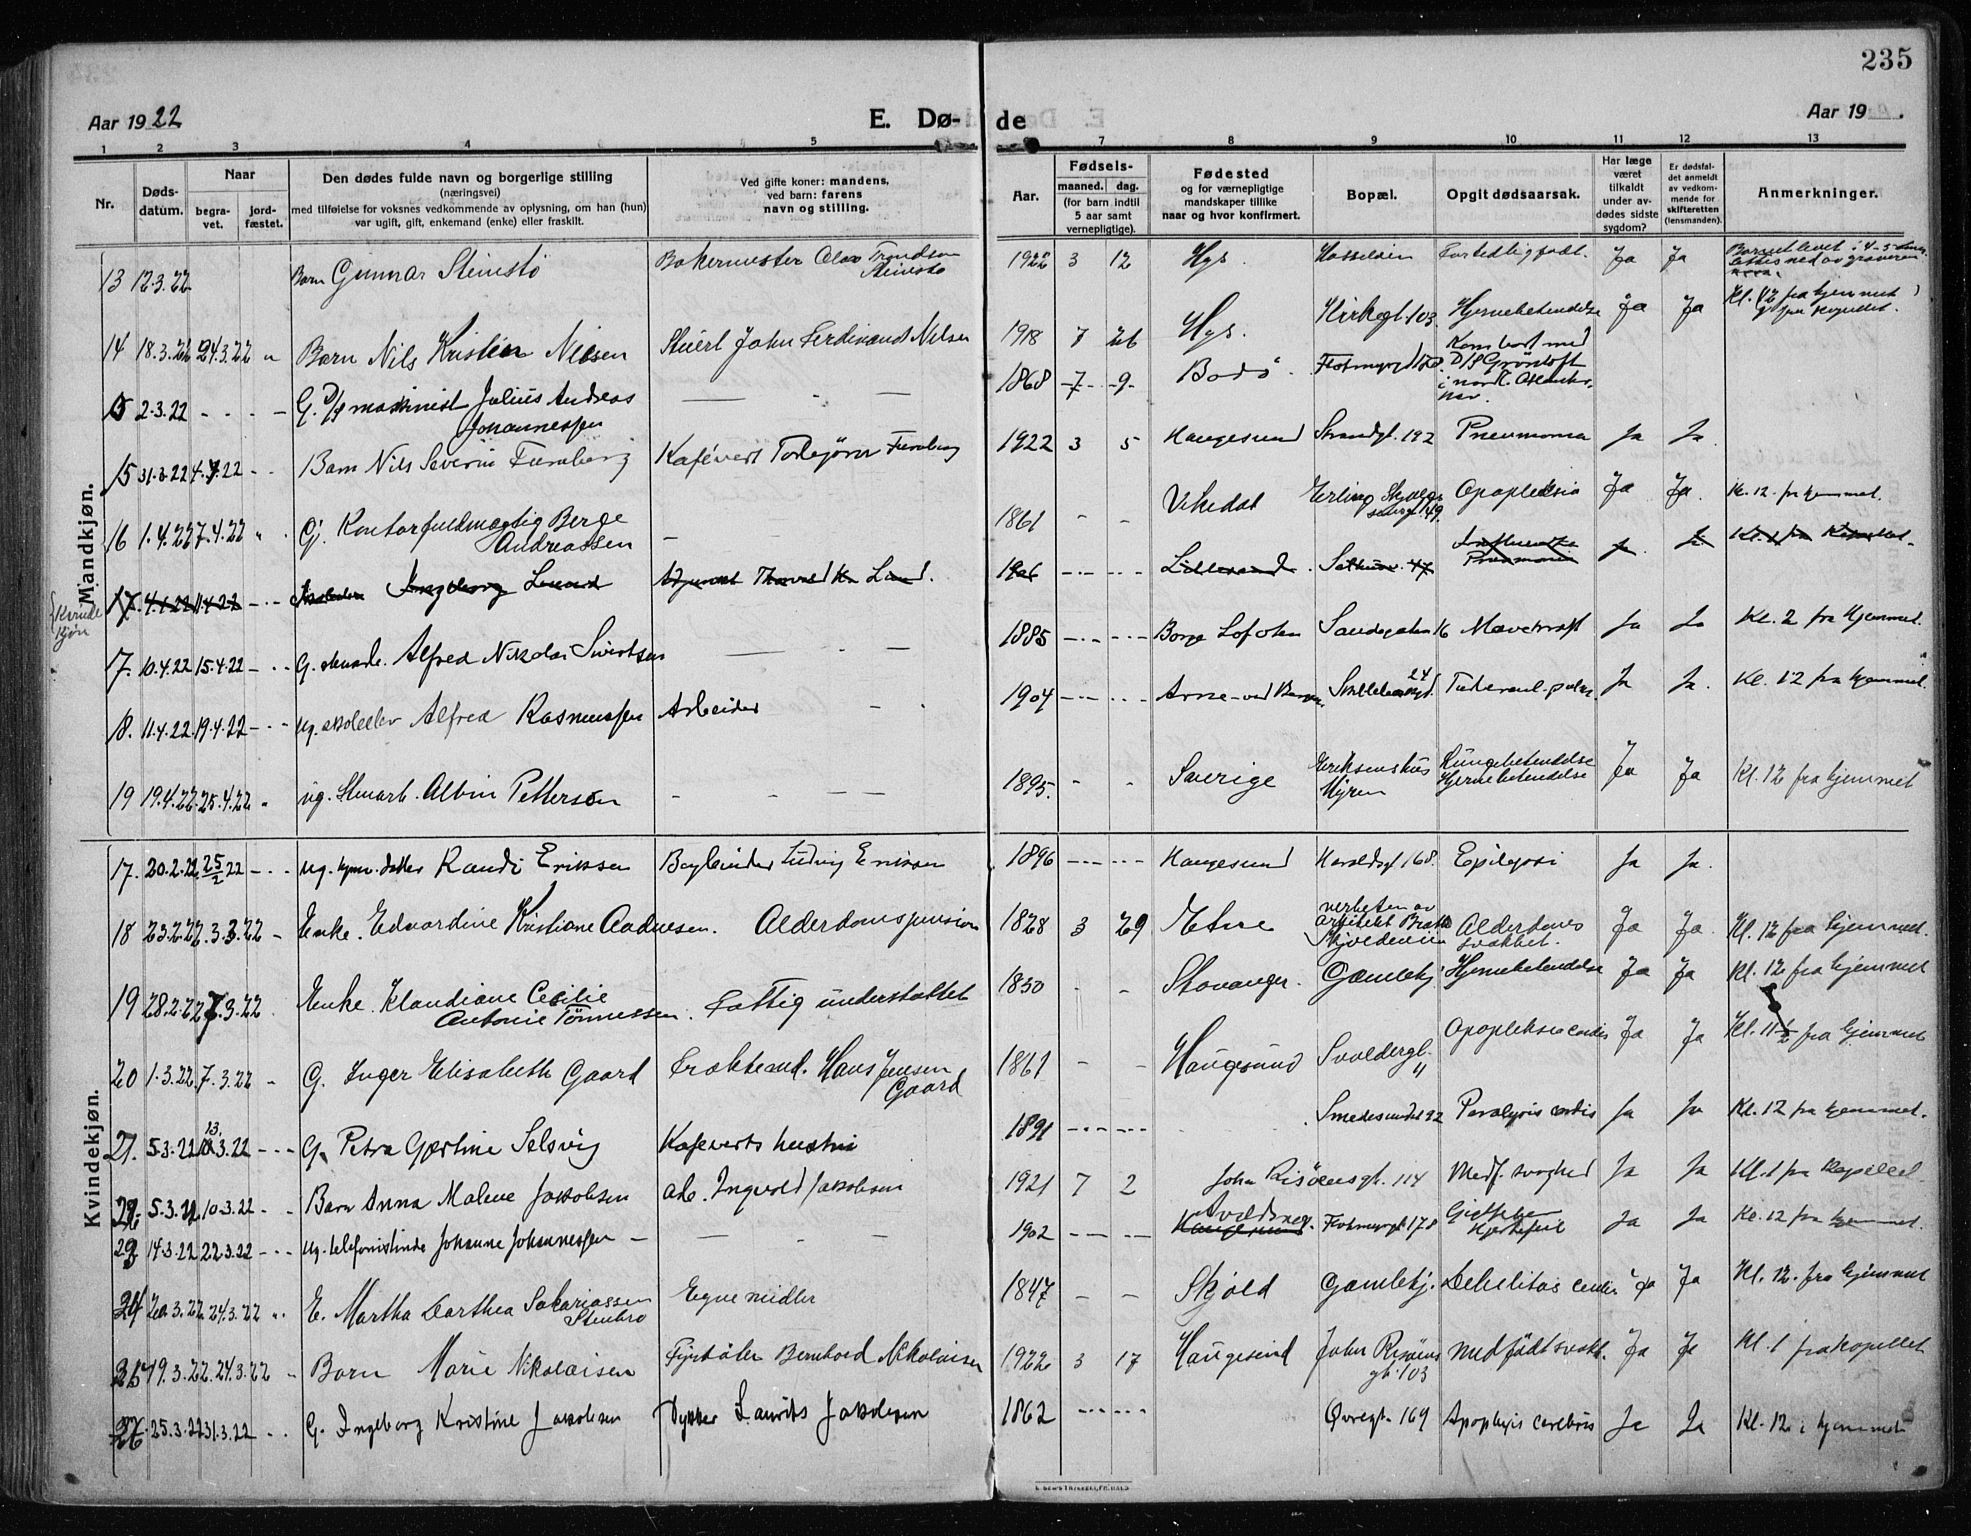 235
Aar 1922
E. Dø-
de
Aar 19
1 2 3 4 5 7 8 9 10 11 12 13
Nr.
Døds-
datum.
Naar
begra-
vet.
jord-
fæstet.
Den dødes fulde navn og borgerlige stilling
(næringsvei)
med tilføielse for voksnes vedkommende av oplysning, om han (hun)
var ugift, gift, enkemand (enke) eller fraskilt.
Ved gifte koner: mandens,
ved barn: farens
navn og stilling.
Aar.
Fødsels-
maaned. dag.
(for barn indtil
5 aar samt
vernepligtige).
Fødested
og for værnepligtige
mandskaper tillike
naar og hvor konfirmert.
Bopæl.
Opgit dødsaarsak.
Har læge
været
tilkaldt
under av-
dødes sidste
sygdom?
Er dødsfal-
det anmeldt
av vedkom-
mende for
skifteretten
(lensmanden).
Anmerkninger.
Mandkjøn.
13 12.3.22 Barn Gunnar Steinstø Bakermester Olav Trondsen Steinstø 1922 3 12 Hgs. Hasseløen Ja Ja
14 18.3.22 24.3.22 " Barn Nils Kristian Nilsen Stuert John Ferdinand Nilsen 1918 7 26 Hgs. Kirkegt. 103 Hjernebetendelse Ja Ja Kl. 12 fra hjemmet
15 2.3.22 - - - G. D/S maskinist Julius Andreas
Johannessen 1868 - 7 - 9 - Bodø. Kom bort med
D/S Grøntoft
i nordl. Atlanter-
hav.
15 31.3.22 4.4.22 - - Barn Nils Severin Furuberg Kafévert Torbjørn Furuberg 1922 3 5 Haugesund Strandgt. 192 Pneumonia Ja Ja
16 1.4.22 7.4.22 " Gj. Kontorfuldmægtig Berge
Andreassen - 1861 - - Vikedal Erling Skjalgs-
sønsgt. 49. Apopleksia Ja Ja. Kl. 12 fra hjemmet.
17. 4.4.22 11.4.22 - - Ingeborg Lund Lund. Lillesand. 47 Pneumonia Ja Ja Kl. 1 fra Kapellet.
{Kvinde
kjøn
17. 10.4.22 15.4.22 - - - G. stuearb. Alfred Nikolai Sivertsen 1885 Borge Lofoten Sandegaten 16 Mavekræft Ja Ja Kl. 2 fra hjemmet.
18. 11.4.22 19.4.22 - - - Ug. skoleelev Alfred Rasmussen Arbeider 1904 Arne ved Bergen 24 Tuberkul. pulm. Ja Ja. Kl. 12 fra hjemmet.
19 19.4.22 25.4.22 " ug. Stenarb. Albin Petterson - - - - 1895. - - Sverige Eriksenshus
Myren Lungebetendelse
Hjernebetendelse Ja Ja Kl. 12 fra hjemmet
Kvindekjøn.
17. 20.2.22 25/2 22 - - - Ug. hjemv. datter Randi Eriksen Bogbinder Ludvig Eriksen 1896 Haugesund Haraldsgt. 168. Epilepsi Ja Ja.
18 23.2.22 2.3.22 - Enke. Edvardine Kristiane Aadnesen. Alderdomspension 1828 3 29 Etne Alderdoms
svakhet. Ja Ja. Kl. 12 fra hjemmet.
19 28.2.22 7.3.22 Enke. Klaudiane Cecilie
Antonie Tønnessen. Fattig understøttet 1850 - - Stavanger. Gamlehj. Hjernebetendelse Ja Ja Kl. 12 fra hjemmet
20 1.3.22 7.3.22 - G. Inger Elisabeth Gaard Hans Jensen
Gaard 1861 - - Haugesund Svoldergt.
11 Apopleksia cerebri Ja Ja Kl. 11 1/2 fra hjemmet
21. 5.3.22 13.3.22 - - - G. Petra Gærtine Selsvig Kafeverts hustru 1891 Smedesundet 92 Paralysis cordis Ja Ja Kl. 12 fra hjemmet.
22. 5.3.22 10.3.22 - - Barn Anna Malene Jakobsen arb. Ingvald Jakobsen 1921 7 2 John Risøensgt. 114 Medf. svaghed Ja Ja Kl. 1 fra Kapellet.
23 14.3.22 22.3.22 - - - Ug. telefonistinde Johanne Johannessen - 1902 Avaldsnes
Haugesund. Flotmyrgt. 178 Ja Ja Kl. 12 fra hjemmet.
24 20.3.22. 24.3.22 " E. Martha Dorthea Sakariassen
Stenbro Egne midler 1847 - - Skjold Gamlehj. Debilitas cordis Ja Ja Kl. 12. fra hjemmet
25 19.3.22. 24.3.22 " Barn Marie Nikolaisen Fyrbøter Bernhard Nikolaisen 1922 3 17 Haugesund John Risøens
gt. 103 Medfødt svakh. Ja Ja Kl. 1 fra Kapellet
26 25.3.22 31.3.22 - - G. Ingeborg Kristine Jakobsen Dykker Laurits Jakobsen 1862 Øvregt. 169 Apoplexis cerebris Ja Ja Kl. 12 i hjemmet